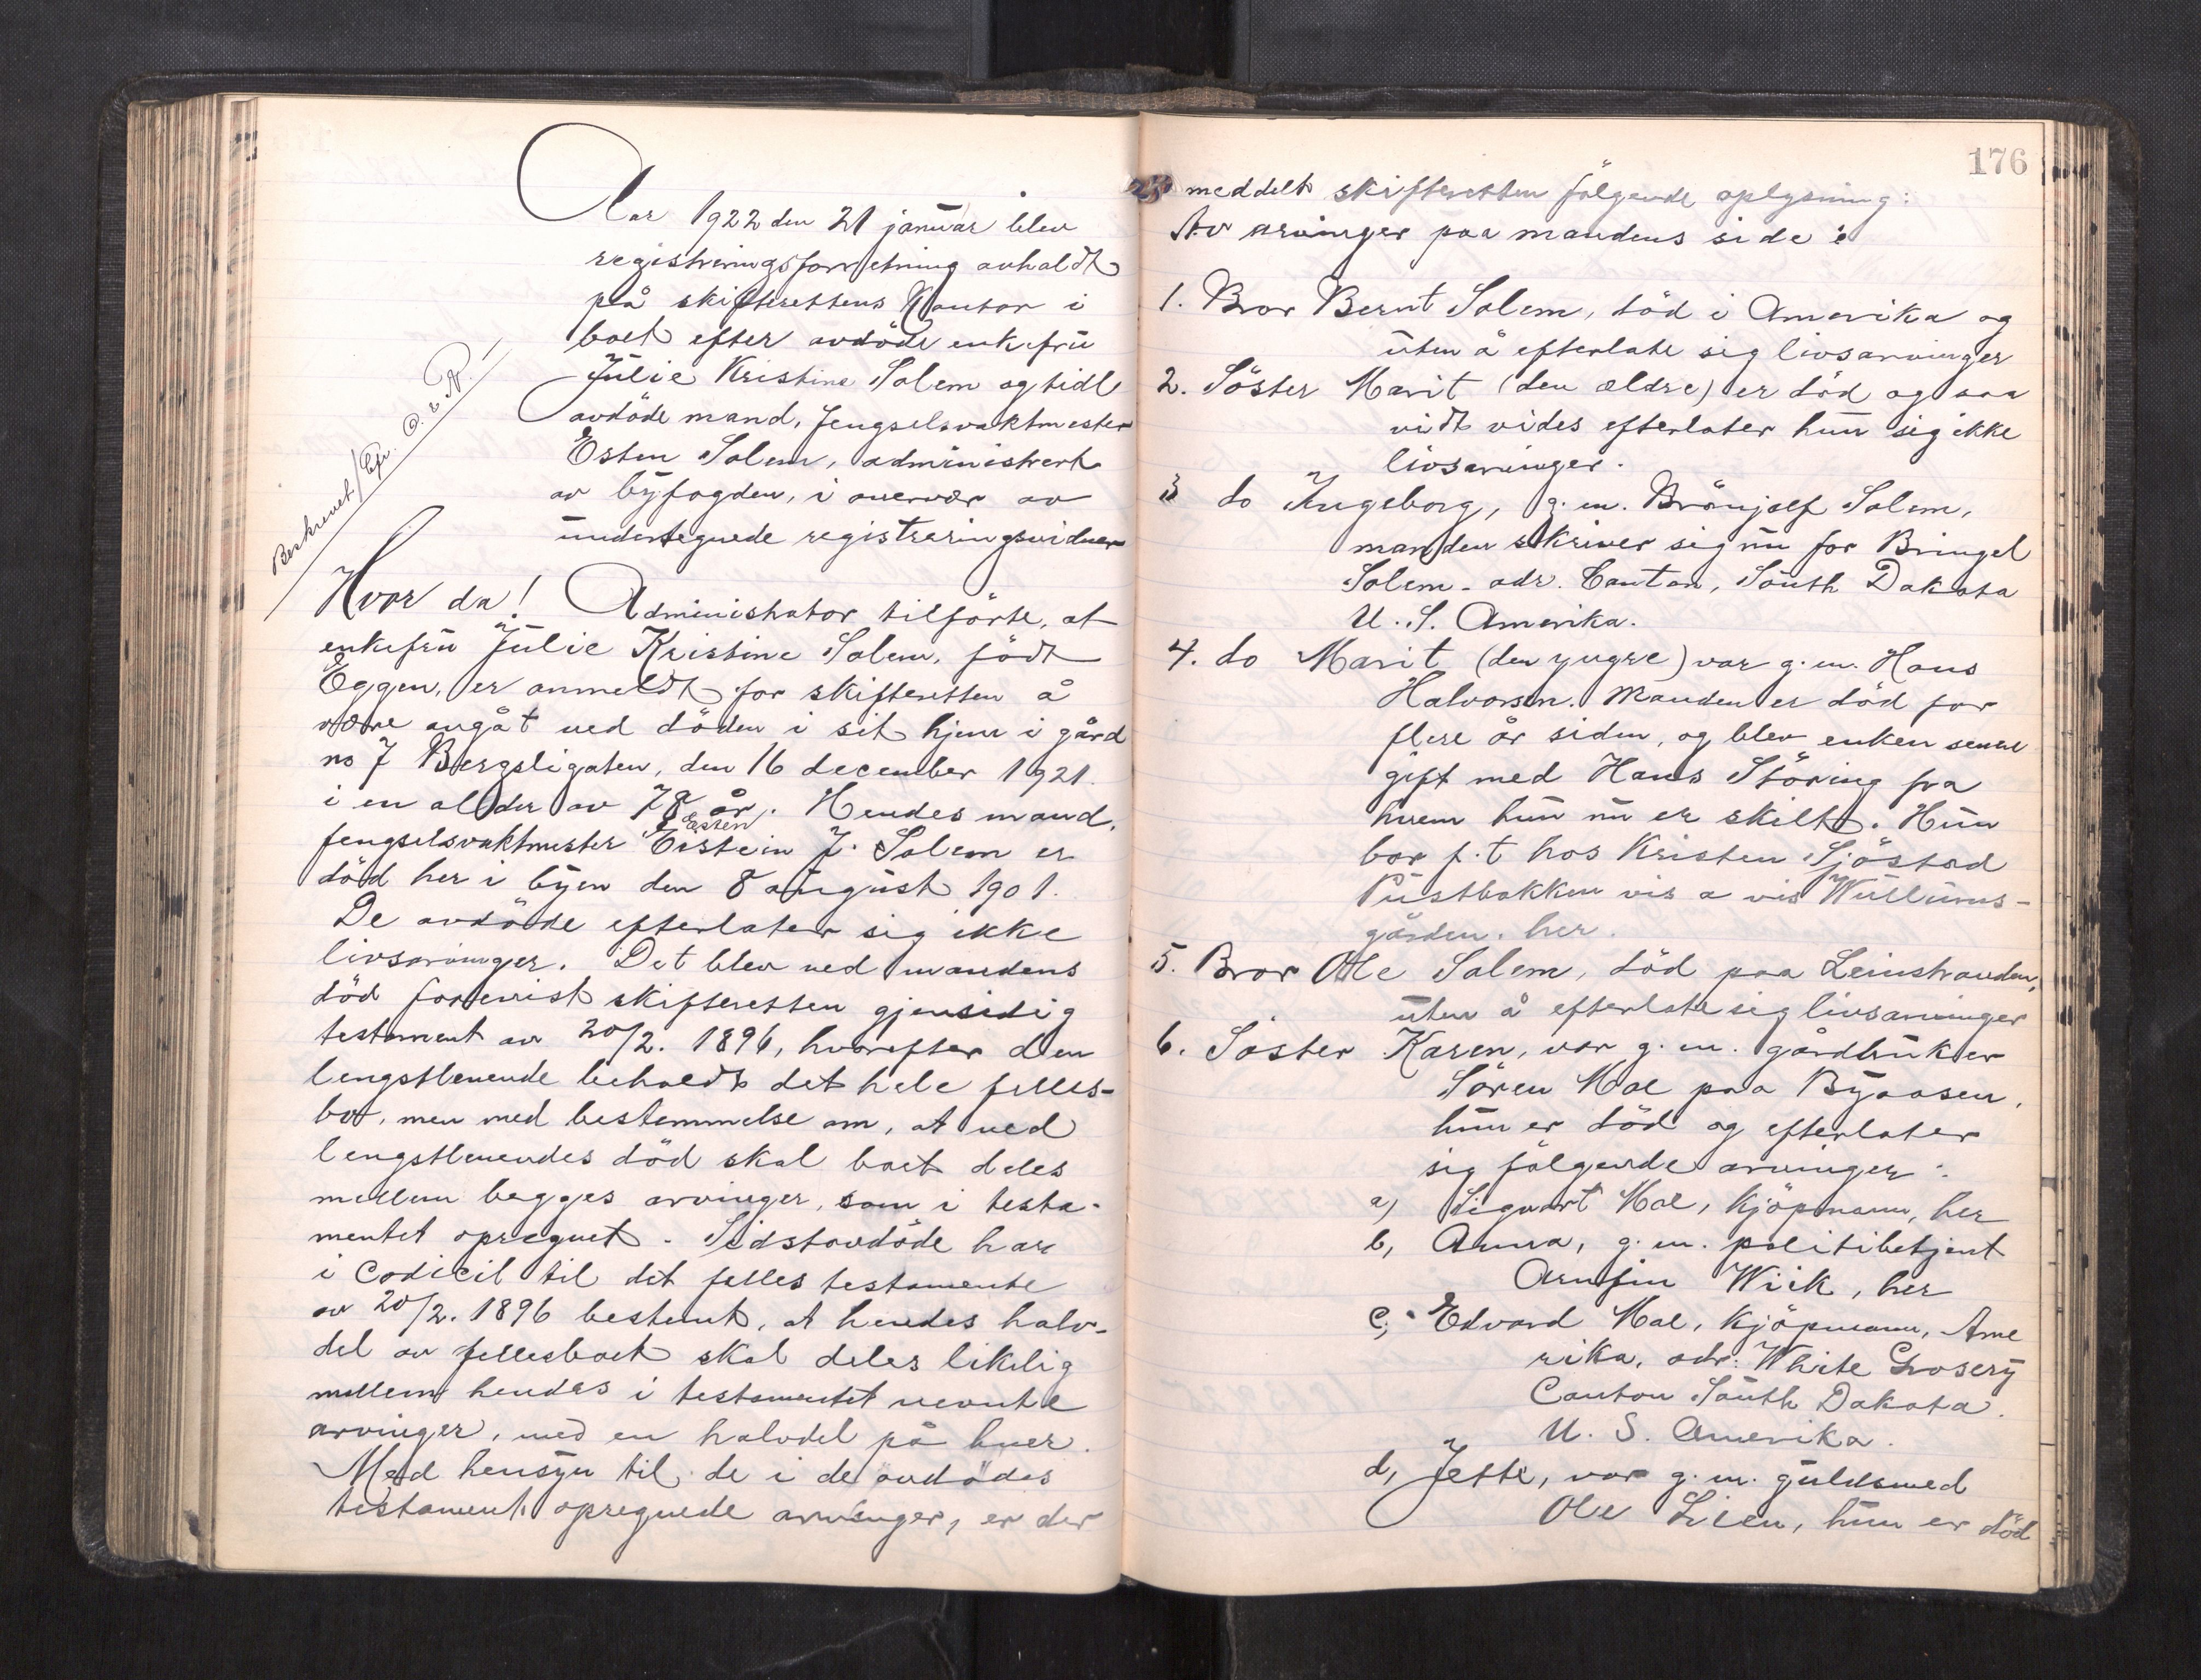 Aar 1922 den 21 januar blev
registreringsforretning avholdt
på skifterettens Kontor i
boet efter avdöde enkefru
Julie Kristine Solem og tidl
avdöde mand, fengselsvaktmester
Esten Solem, administrert
av byfogden, i overvær av
undertegnede registreringsvidner
Beskrevet/Efr. O. r. A.
Hvor da! Administrator tilförte, at
enkefru Julie Kristine Solem, födt
Eggen, er anmeldt for skifteretten å
være avgåt ved döden i sit hjem i gård
no 7 Bergsligaten, den 16 december 1921.
i en alder av 78 år. Hendes mand,
Esten
fengselsvaktmester Eistein J. Solem er
död her i byen den 8 august 1901.
De avdöde efterlater sig ikke
livsarvinger. Det blev ved mandens
död forevist skifteretten gjensidig
testament av 20/2. 1896, hvorefter den
lengstlevende beholdt det hele felles-
bo, men med bestemmelse om, at ved
lengstlevendes död skal boet deles
mellem begges arvinger, som i testa-
mentet opregnet. Sidstavdöde har
i Codicil til det felles testamente
av 20/2. 1896 bestemt, at hendes halv-
del av fellesboet skal deles likelig
mellem hendes i testamentet nevnte
arvinger, med en halvdel på hver.
Med hensyn til de i de avdödes
testament opregnede arvinger, er der
176
meddelt skifteretten fölgende oplysning:
Av arvinger paa mandens side:
1. Bror Bernt Solem, död i Amerika og
uten å efterlate sig livsarvinger
2. Söster Marit (den ældre) er död og saa
vidt vides efterlater hun sig ikke
livsarvinger.
3 do Ingeborg, g. m. Brönjolf Solem,
manden skriver sig nu for Bringel
Solem - adr. Canton, South Dakota
U. S. Amerika.
4. do Marit (den yngre) var g. m. Hans
Halvorsen. Manden er död for
flere år siden, og blev enken senere
gift med Hans Störing fra
hvem hun nu er skilt. Hun
bor p. t hos Kristen Sjöstad
Pustbakken vis a vis Wullums-
gården. her.
5. Bror Ole Solem, död paa Leinstranden,
uten å efterlate sig livsarvinger
6. Söster Karen, var g. m. gårdbruker
Sören Moe paa Byaasen,
hun er död og efterlater
sig fölgende arvinger:
a) Sigvart Moe, kjöpmann, her
b, Anna, g. m. politibetjent
Arnfin Wiik, her
c, Edvard Moe, kjöpmann, Ame
rika, adr: White Grosery
Canton South Dakota.
U. S. Amerika.
d, Jette, var g. m. guldsmed
Ole Lien, hun er död